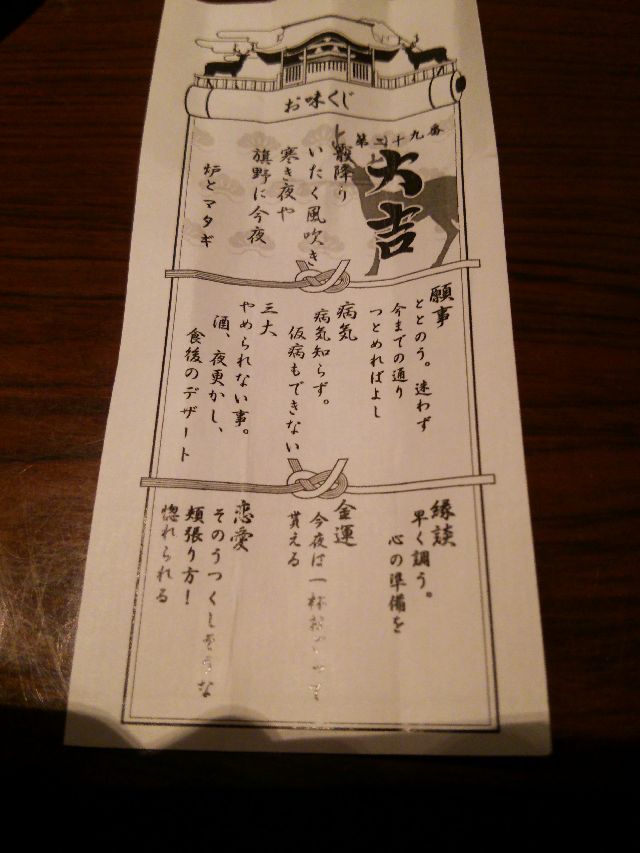 お味くじ
第三十九番
大吉
霰降り
いたく風吹き
寒き夜や
旗野に今夜
炉とマタギ
願事
ととのう。迷わず
今までの通り
つとめればよし
病気
病気知らず。
仮病もできない
三大
やめられない事。
酒、夜更かし、
食後のデザート
縁談
早く調う。
心の準備を
金運
今夜は一杯おごって
貰える
恋愛
そのうつくしそうな
頬張り方!
惚れられる